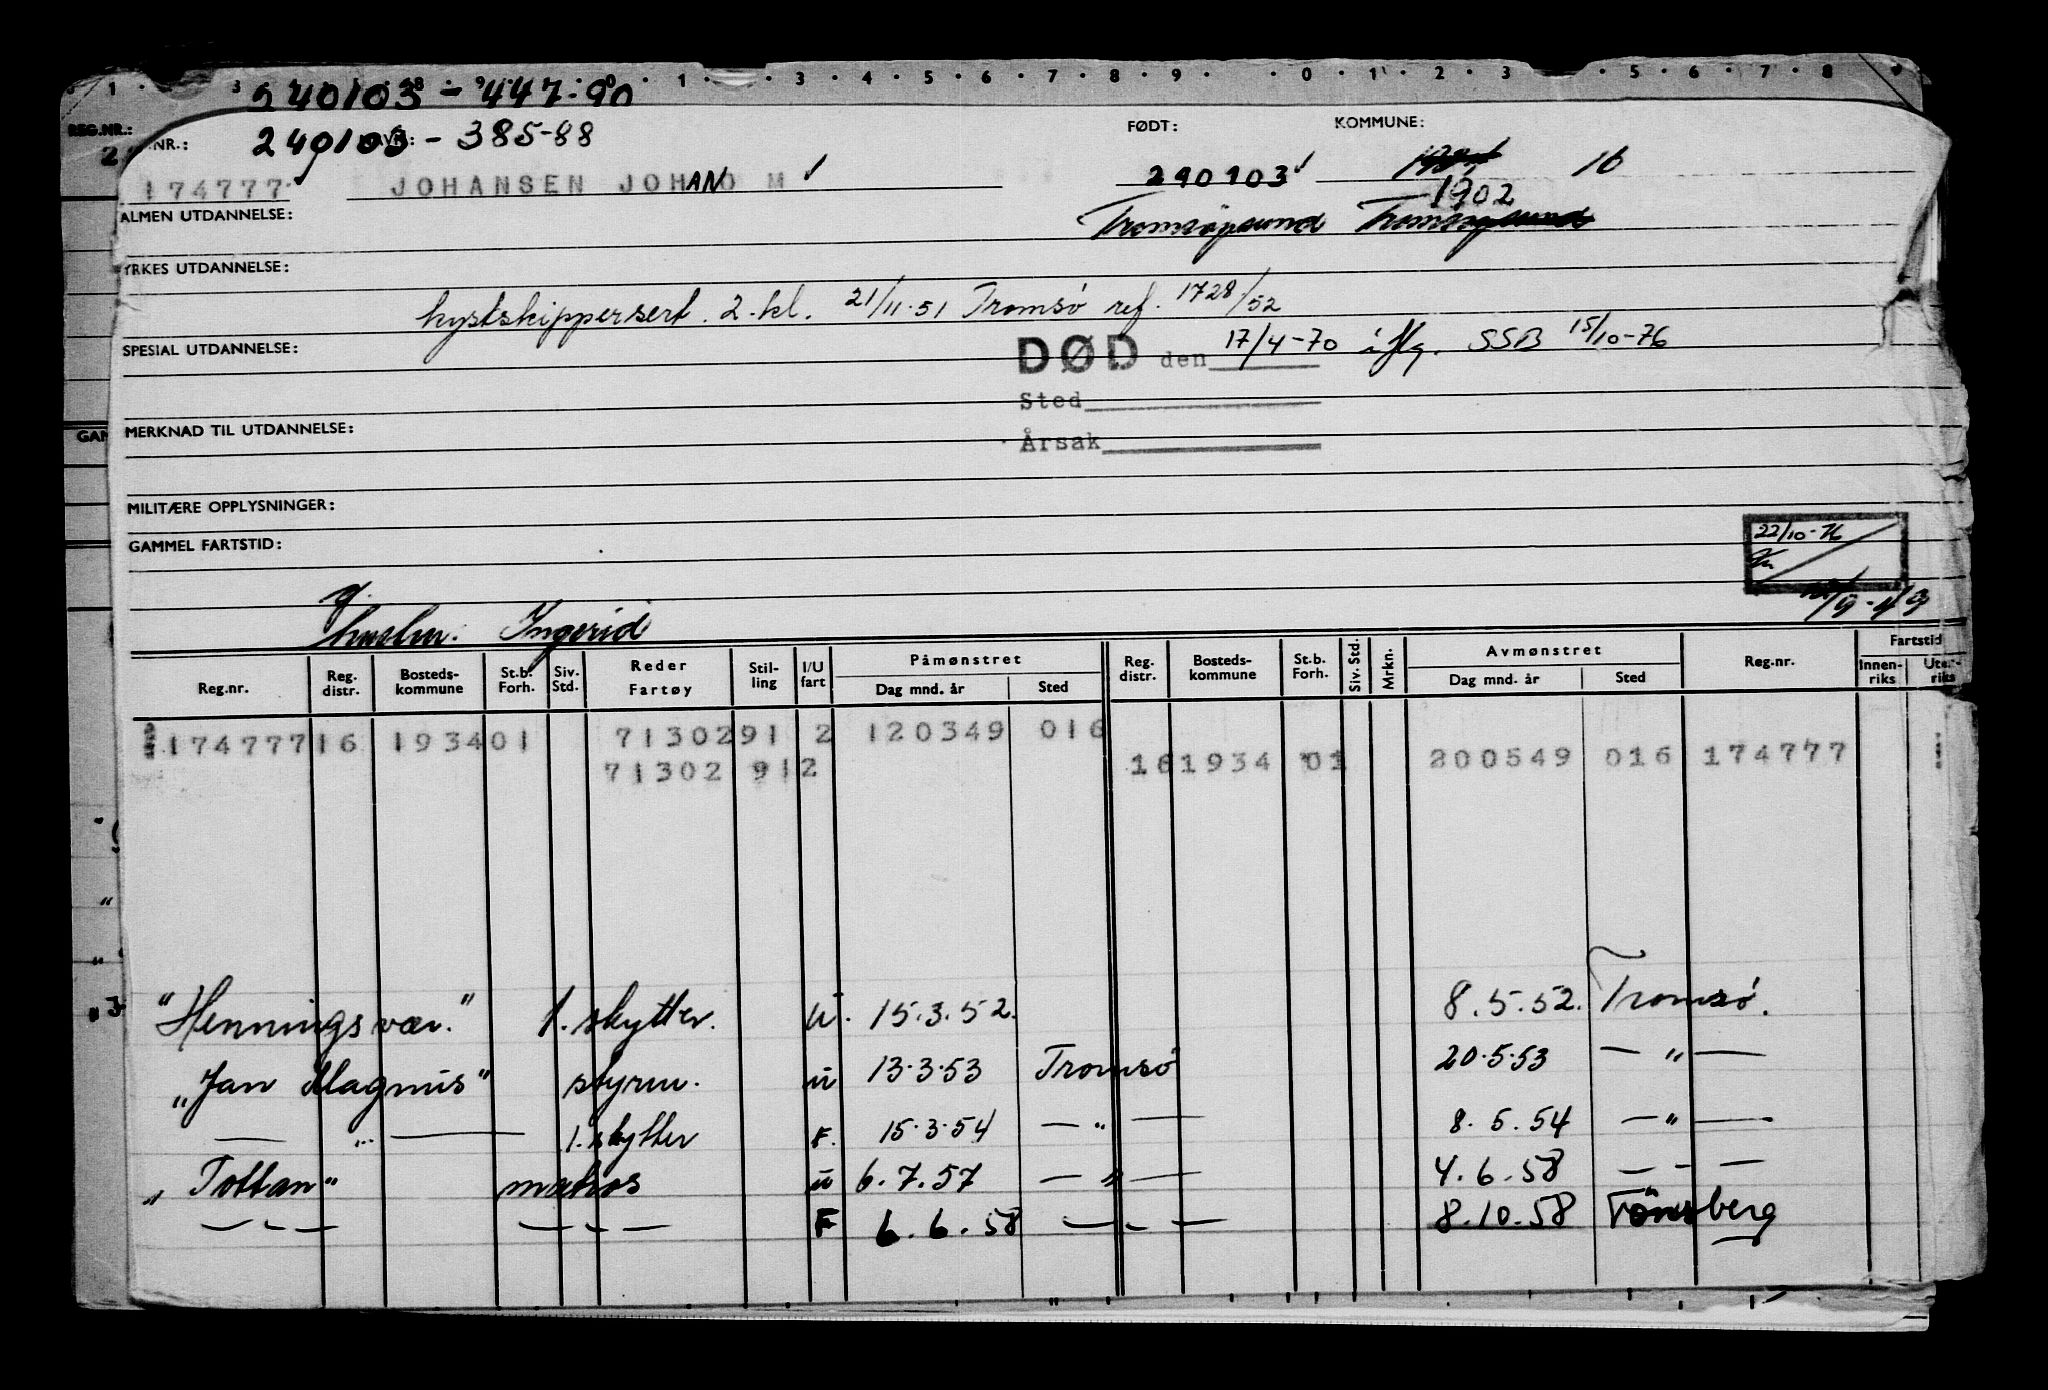 240103 - 447-90
REG.NR.: NR.: 240103 - 385-88 FØDT: KOMMUNE:
174777 JOHANSEN JOHAN M 240103 1902 16
ALMEN UTDANNELSE: Tromsøysund Tromsøysund
YRKES UTDANNELSE:
kystskippersert. 2. kl. 21/11-51 Tromsø ref. 1728/52
SPESIAL UTDANNELSE: DØD den 17/4-70 iflg. SSB 15/10-76
Sted
MERKNAD TIL UTDANNELSE: Årsak
MILITÆRE OPPLYSNINGER:
GAMMEL FARTSTID: 22/10-76
g.
hustru: Ingerid
Reg.nr. Reg. distr. Bosteds-kommune St.b. Forh. Siv. Std. Reder Fartøy Stil-ling I/U fart Påmønstret Dag mnd. år Sted Reg. distr. Bosteds-kommune St.b. Forh. Siv. Std. Mrkn. Avmønstret Dag mnd. år Sted Reg.nr. Fartstid Innen-riks Uten-riks
174777 16 1934 01 71302 91 2 120349 016
71302 91 2 16 1934 01 200549 016 174777
"Henningsvær." 1. skytter. u. 15.3.52. 8.5.52. Tromsø.
"Jan Magnus" styrm. u 13.3.53 Tromsø 20.5.53 — " —
— " — 1. skytter F. 15.3.54 — " — 8.5.54 — " —
"Tottan" matros u 6.7.57 — " — 4.6.58 — - —
— - — — - — F 6.6.58 — - — 8.10.58 Tönsberg